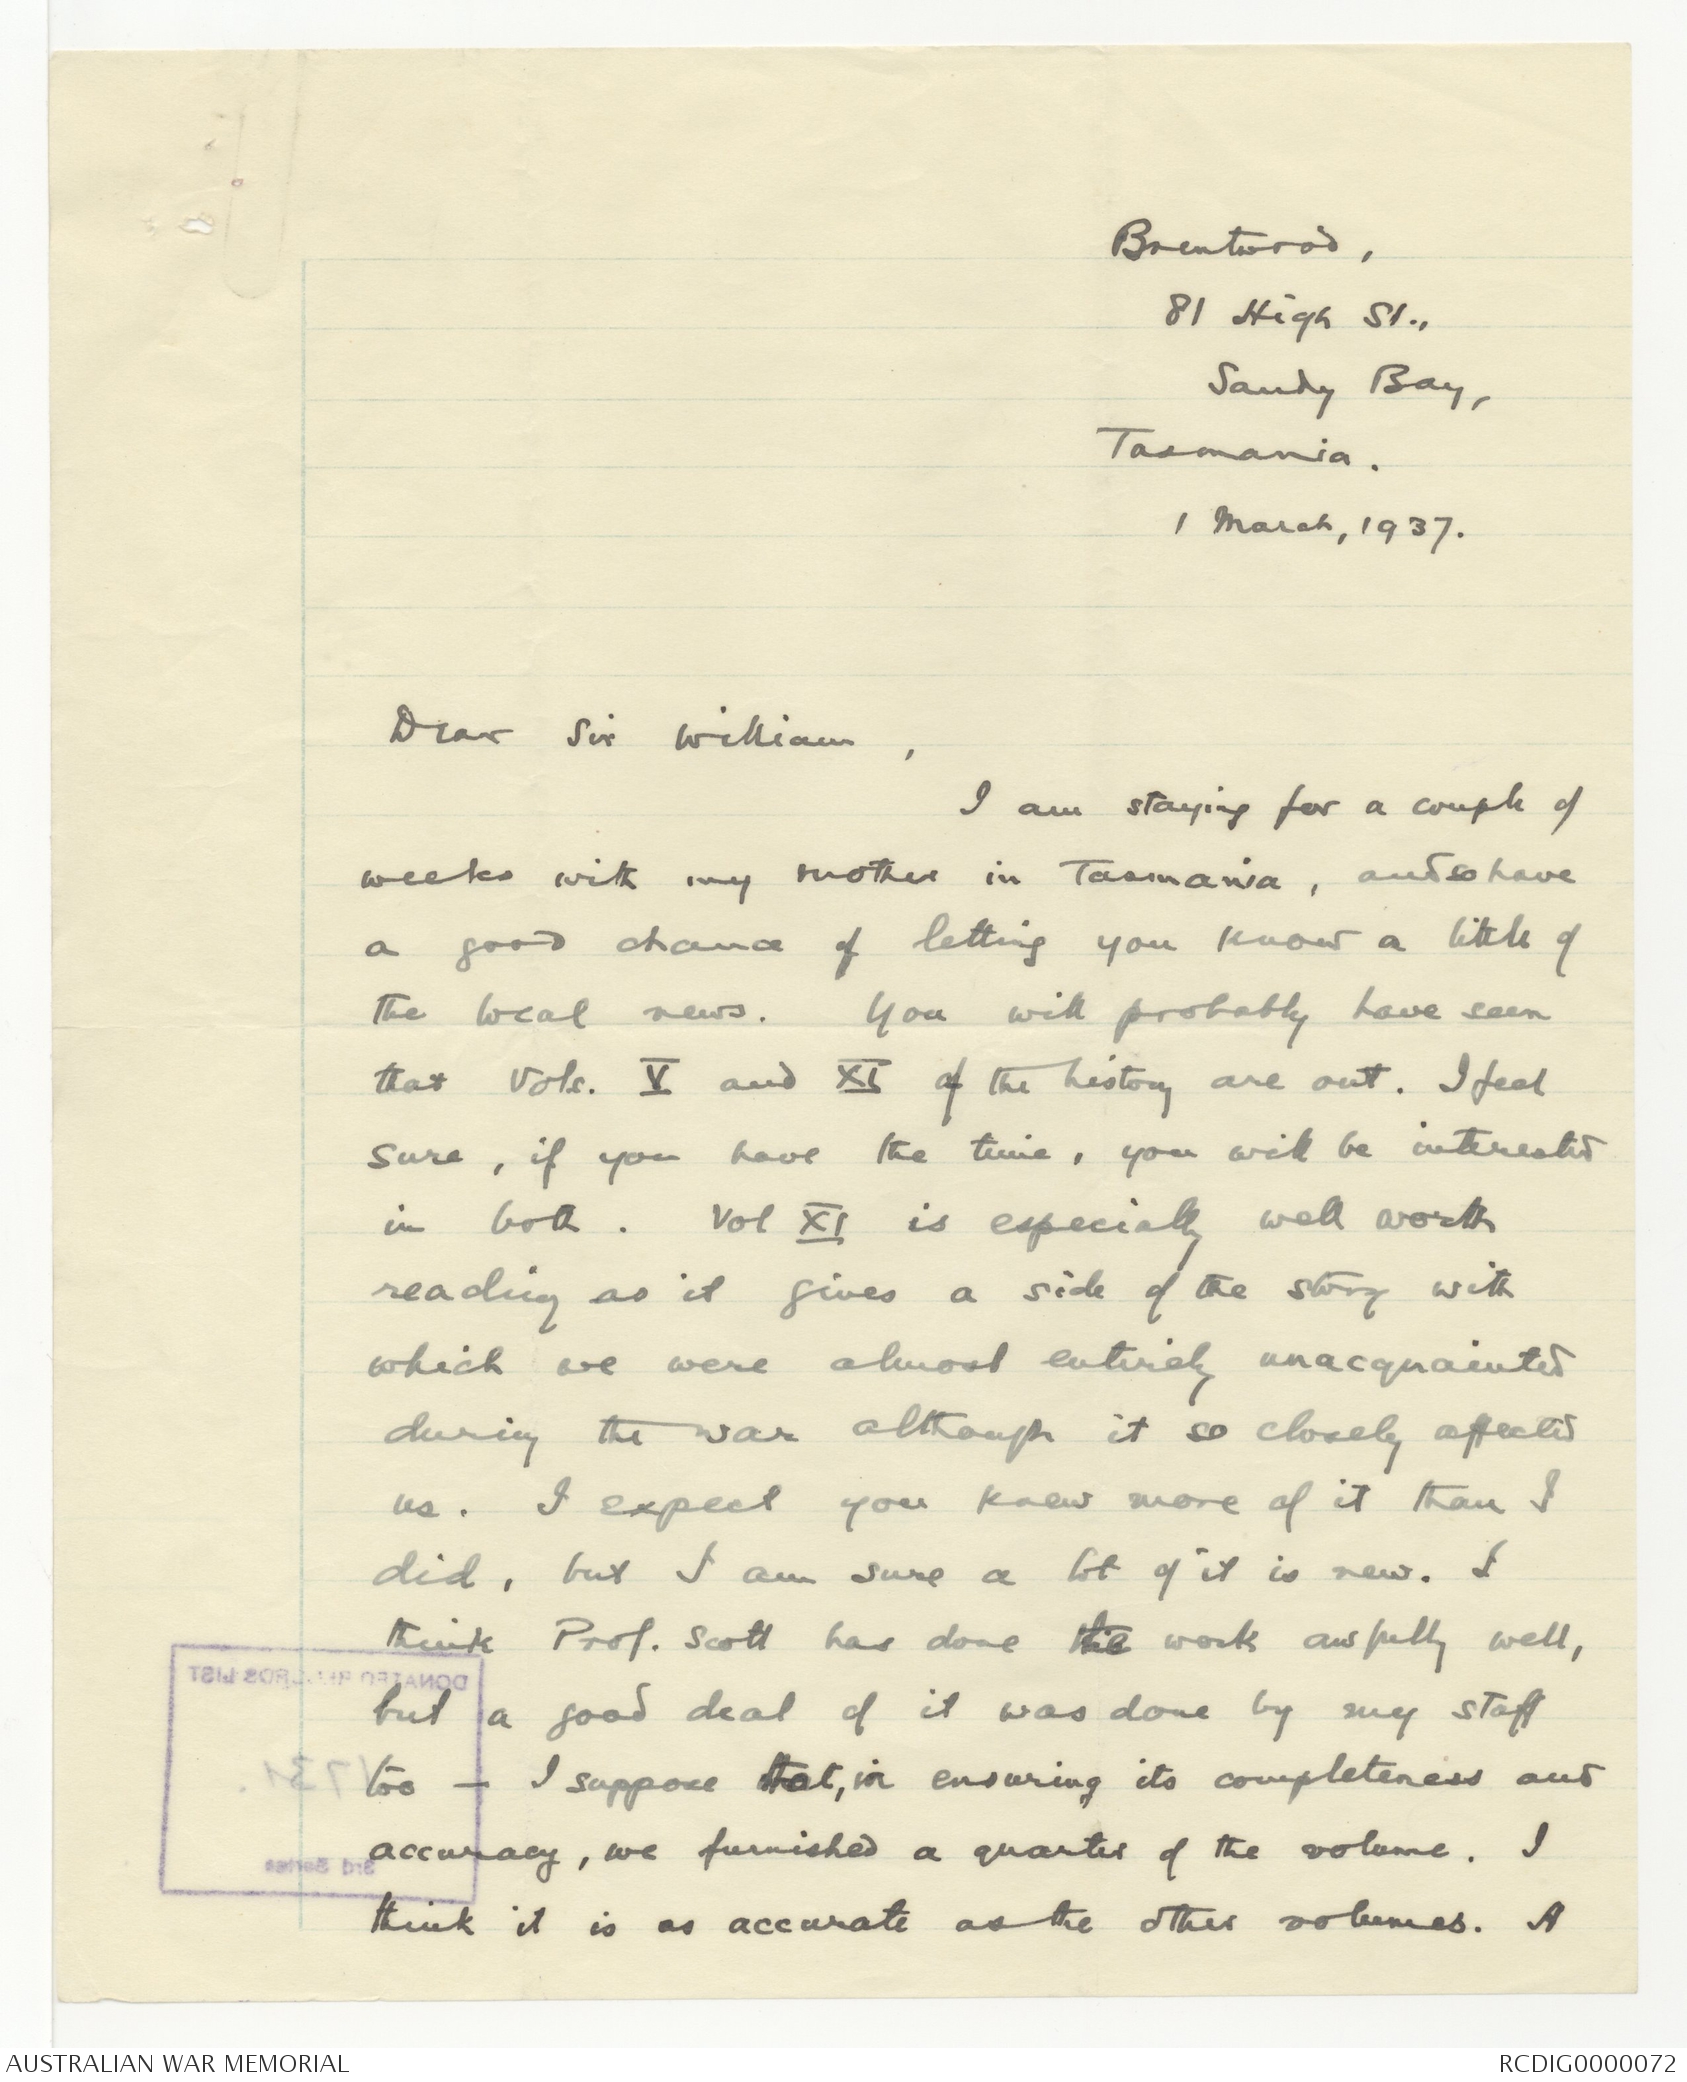 Brentwood,
81 High St.,
Sandy Bay,
Tasmania.
1 March, 1937.
Dear Sir William,
I am staying for a couple of
weeks with my mother in Tasmania, and so have
a good chance of letting you know a little of
the local news. You will probably have seen
that Vols. V and XI of the history are out. I feel
sure, if you have the time, you will be interested
in both. Vol XI is especially well worth
reading as it gives a side of the story with
which we were almost entirely unacquainted
during the war although it so closely affected
us. I expect you knew more of it than I
did, but I am sure a lot of it is new. I
think Prof. Scott has done the work awfully well,
but a good deal of it was done by my staff
too — I suppose that, in ensuring its completeness and
accuracy, we furnished a quarter of the volume. I
think it is as accurate as the other volumes. A
DONATED RECORDS LIST
3rd Series
AUSTRALIAN WAR MEMORIAL
RCDIG0000072